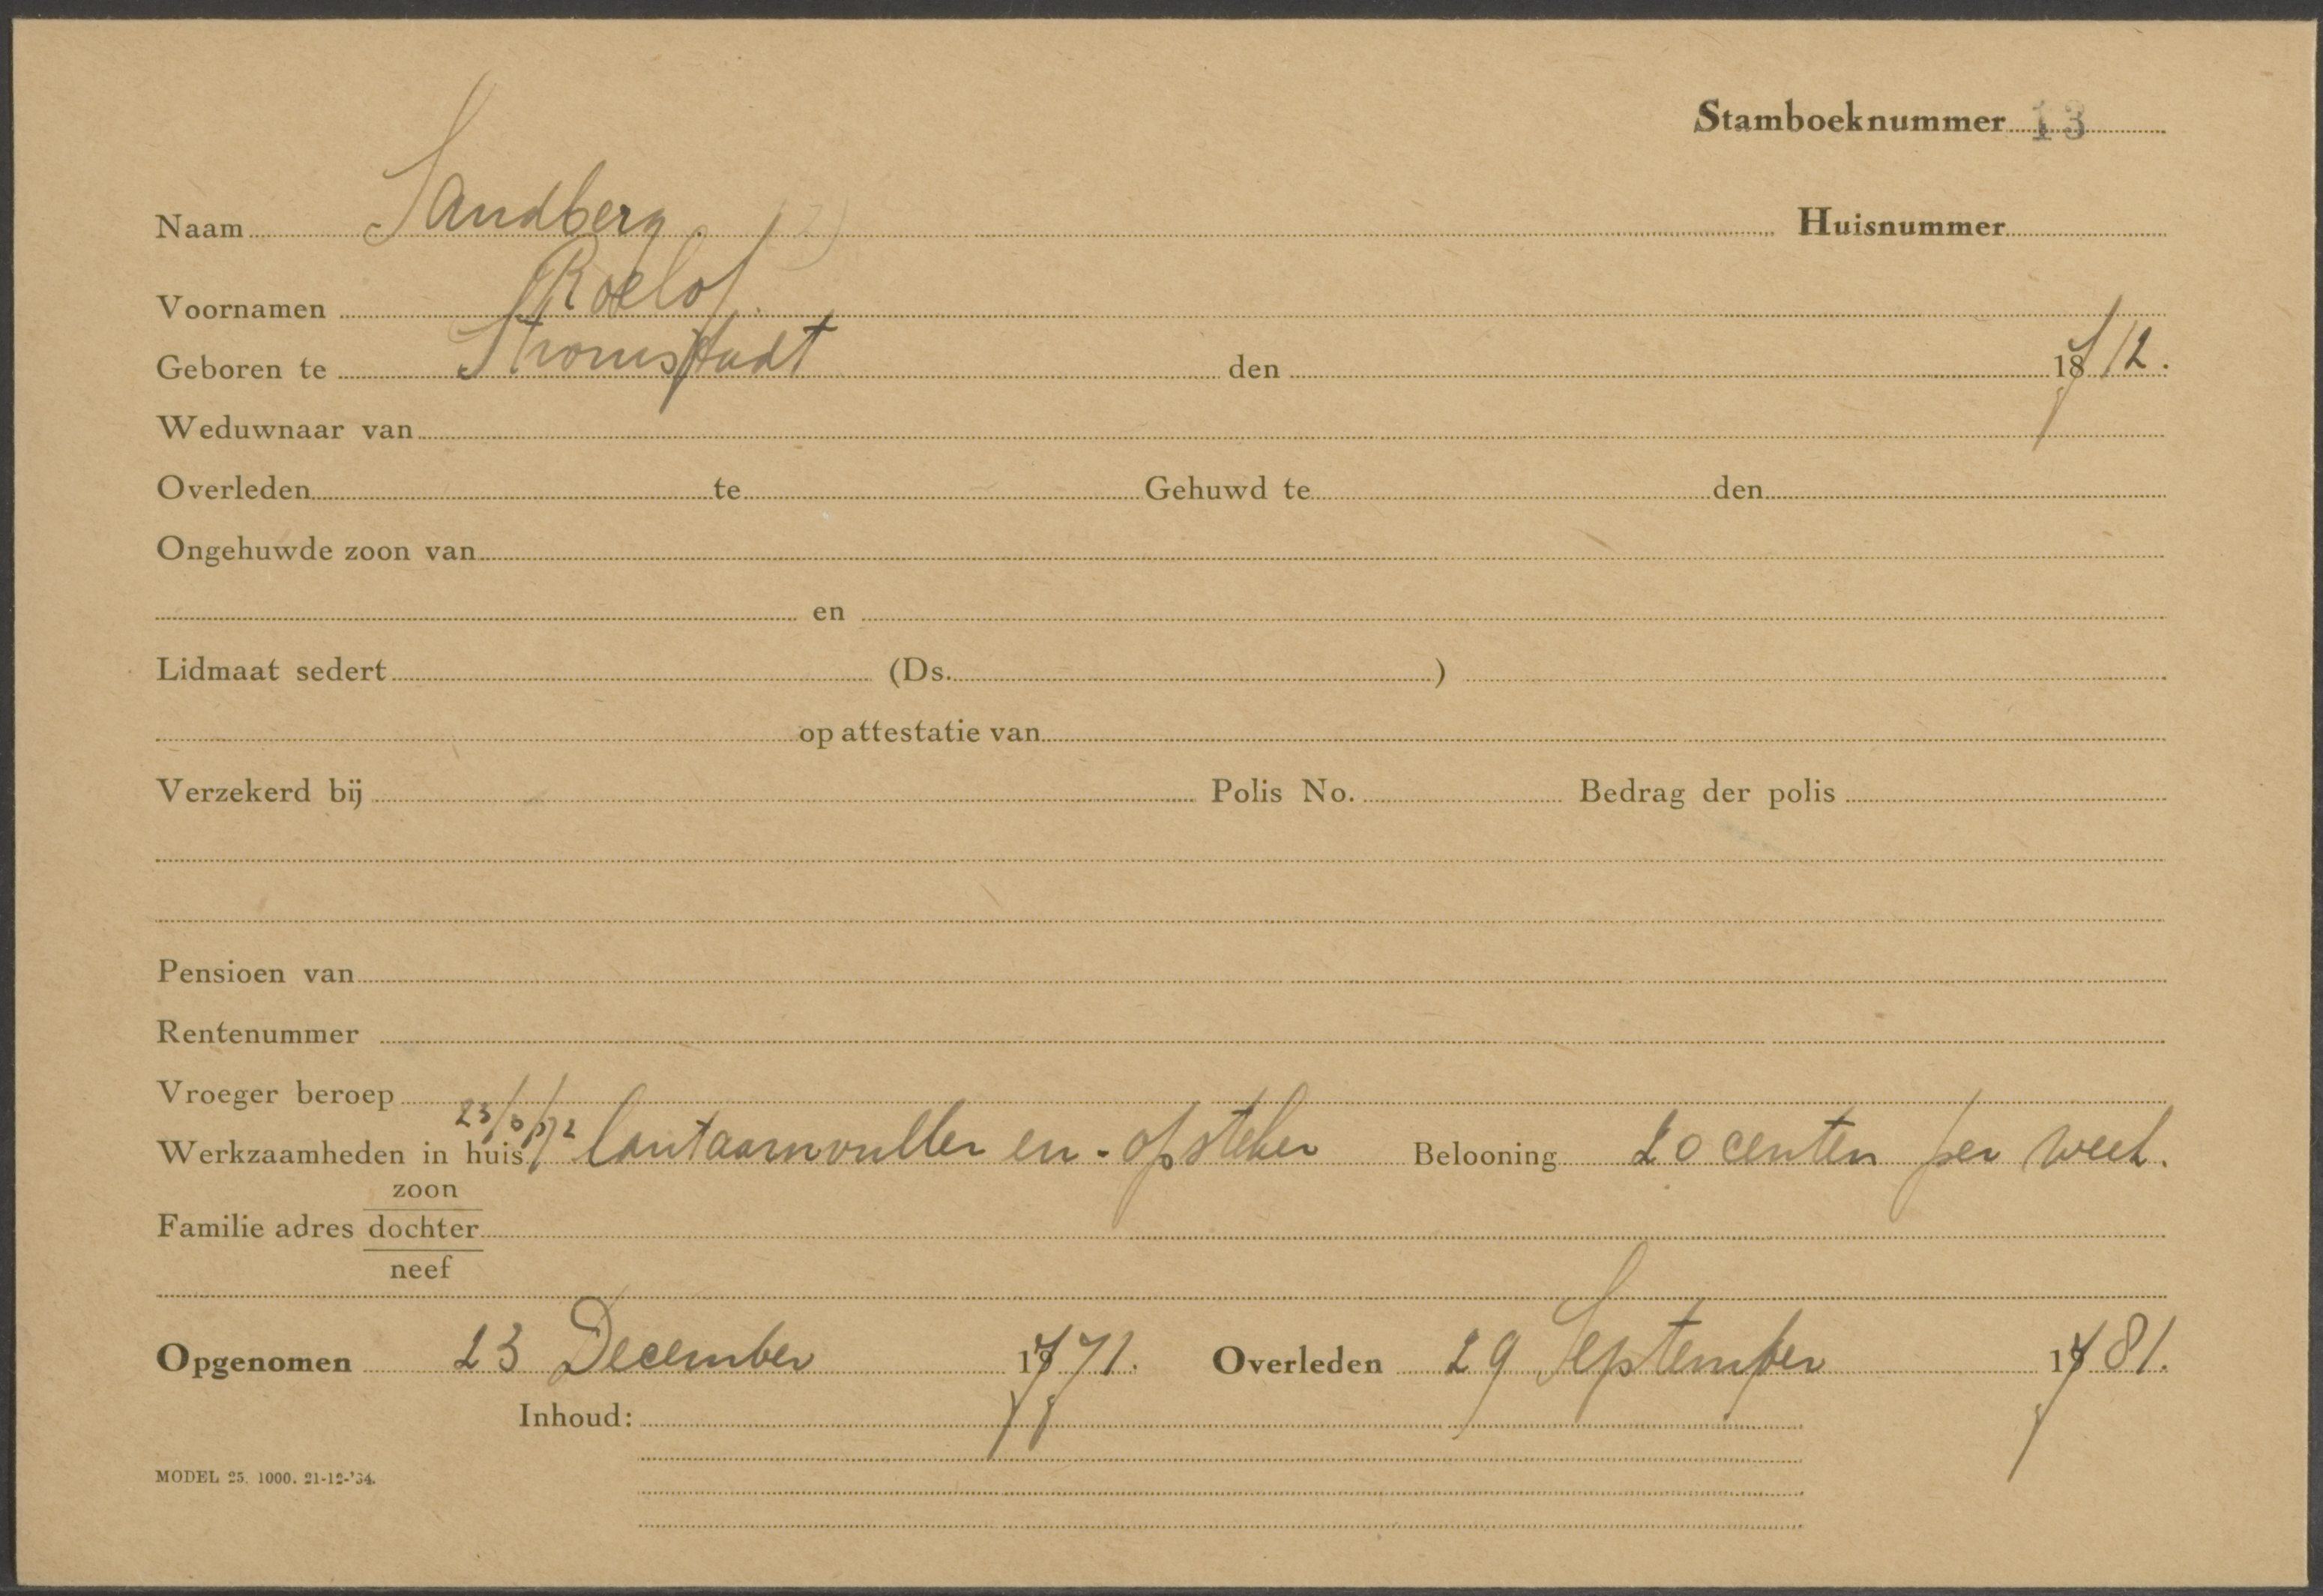 Stamboeknummer 13
Naam Sandberg Huisnummer
Voornamen Roelof.
Geboren te Stromstadt den 1712.
Weduwnaar van
Overleden te Gehuwd te den
Ongehuwde zoon van
en
Lidmaat sedert (Ds. )
op attestatie van
Verzekerd bij Polis No. Bedrag der polis
Pensioen van
Rentenummer
Vroeger beroep
Werkzaamheden in huis lantaarnvuller en - opsteker Belooning 20 centen per week.
zoon
Familie adres dochter
neef
Opgenomen 23 December 1771. Overleden 29 September 1781.
Inhoud:
MODEL 25. 1000. 21-12-'34.